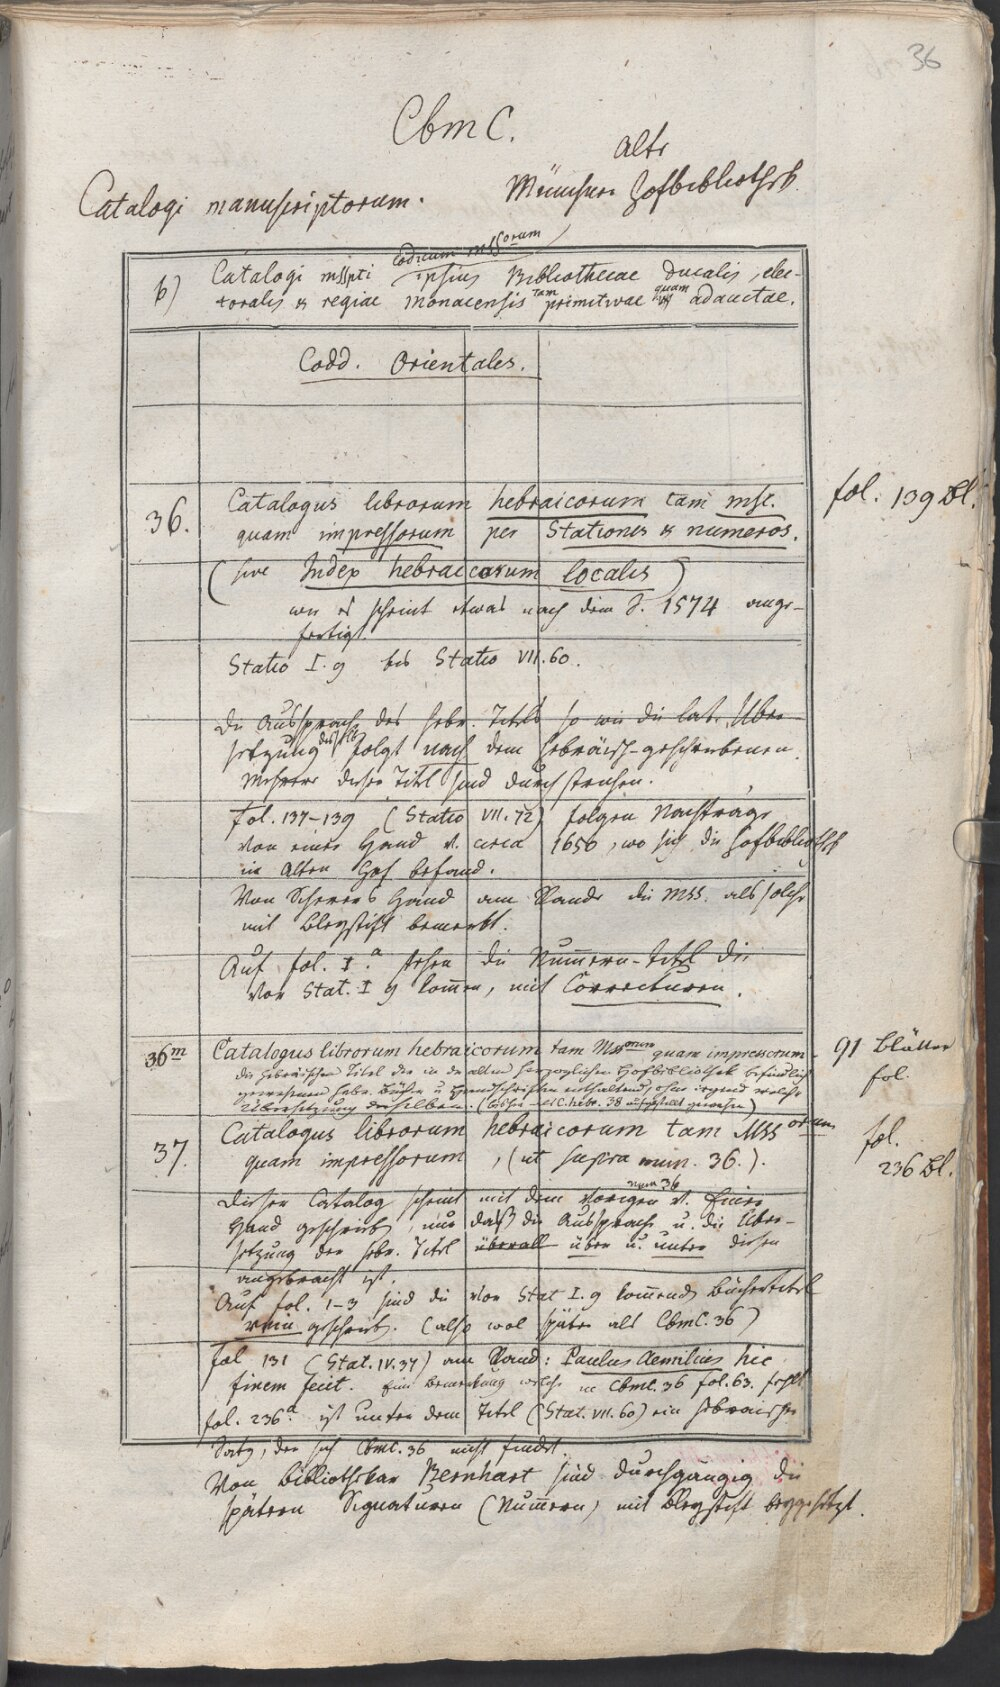 36
Cbm C.
Alte
Catalogi manuscriptorum. Münchner Hofbibliothek.
codicum mssorum
b) Catalogi msspti ipsius Bibliothecae ducalis, elec-
toralis & regiae monacensis tam primitivae quam adauctae.
Codd. Orientales.
36. Catalogus librorum hebraicorum tam mst. fol. 139 Bl.
quam impressorum per Stationes & numeros.
(sive Index hebraicorum localis)
wie es scheint etwas nach dem J. 1574 ange-
fertigt.
Statio I. 9 bis Statio VII. 60.
Die Aussprache des hebr. Titels so wie die lat. Über-
setzung desselb. folgt nach dem hebräisch-geschriebenen.
Mehrere dieser Titel sind durchstrichen.
fol. 137–139 (Statio VII. 72) folgen Nachträge
von einer Hand v. circa 1650, wo sich die Hofbibliothek
im Alten Hof befand.
Von Scherers Hand am Rande die Mss. als solche
mit Bleystift bemerkt.
Auf fol. I.a stehen die Nummern-Titel die
vor Stat. I 9 kommen, mit Correcturen.
36m Catalogus librorum hebraicorum tam Mssorum quam impressorum 91 Blätter
die hebräischen Titel der in der alten herzoglichen Hofbibliothek befindlich fol.
gewesenen hebr. Bücher u. Handschriften enthaltend, ohne irgend welche
Übersetzung derselben. (bisher als C. hebr. 38 aufgestellt gewesen)
37. Catalogus librorum hebraicorum tam Mssorum fol.
quam impressorum, (ut supra num. 36.). 236 Bl.
num 36
Dieser Catalog scheint mit dem vorigen v. Einer
Hand geschrieb., nur daß die Aussprache u. die Über-
setzung der hebr. Titel überall über u. unter diesen
angebracht ist.
Auf fol. 1–3 sind die vor Stat I. 9 kommend. Büchertitel
rein geschrieb. (also wol später als CbmC. 36)
fol 131 (Stat. IV. 37) am Rand: Paulus Aemilius hic
finem fecit. Eine Bemerkung welche in CbmC. 36 fol. 63. fehlt
fol. 236a. ist unter dem Titel (Stat. VII. 60) ein hebräischer
Satz, der sich CbmC. 36 nicht findet.
Von Bibliothekar Bernhart sind durchgängig die
spätern Signaturen (Nummern) mit Bleystift beygesetzt.